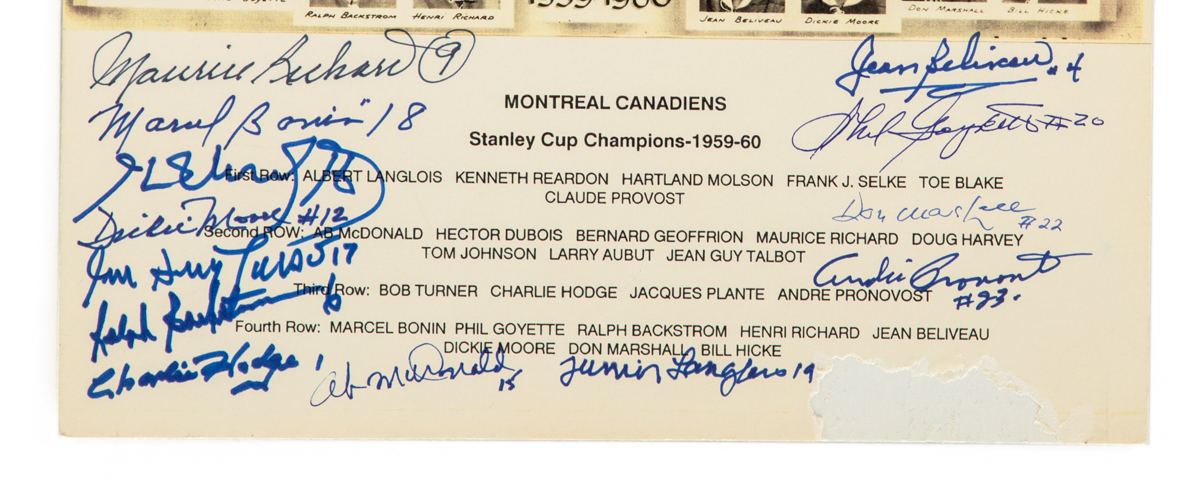 RALPH BACKSTROM HENRI RICHARD 1959-1960 JEAN BELIVEAU DICKIE MOORE DON MARSHALL BILL HICKE
Maurice Richard 9
Jean Beliveau #4
Marcel Bonin 18
MONTREAL CANADIENS
Phil Goyette #20
Stanley Cup Champions-1959-60
First Row: ALBERT LANGLOIS KENNETH REARDON HARTLAND MOLSON FRANK J. SELKE TOE BLAKE
CLAUDE PROVOST
Dickie Moore #12
Don Marshall #22
Second ROW: AB McDONALD HECTOR DUBOIS BERNARD GEOFFRION MAURICE RICHARD DOUG HARVEY
TOM JOHNSON LARRY AUBUT JEAN GUY TALBOT
Jean Guy Talbot 17
André Pronovost #23.
Third Row: BOB TURNER CHARLIE HODGE JACQUES PLANTE ANDRE PRONOVOST
Ralph Backstrom 6
Fourth Row: MARCEL BONIN PHIL GOYETTE RALPH BACKSTROM HENRI RICHARD JEAN BELIVEAU
DICKIE MOORE DON MARSHALL BILL HICKE
Charlie Hodge 1
Ab McDonald 15
Junior Langlois 19